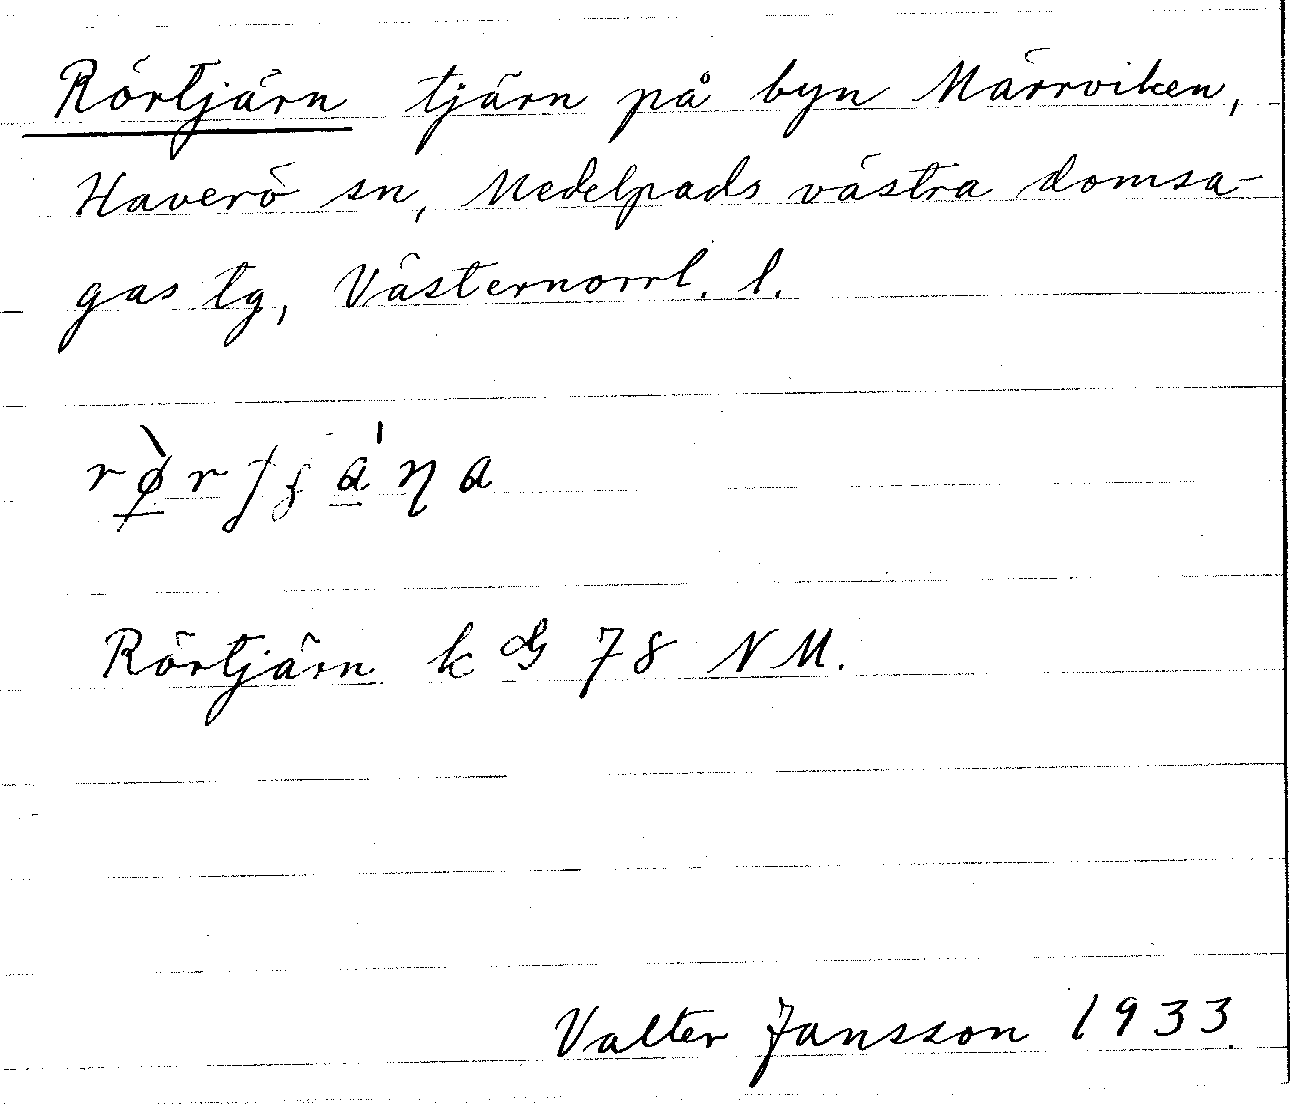 Rörtjärn tjärn på byn Märrviken,
Haverö sn, Medelpads västra domsa-
gas tg, Västernorrl. l.
Rörtjärn k 78 NM.
Valter Jansson 1933.